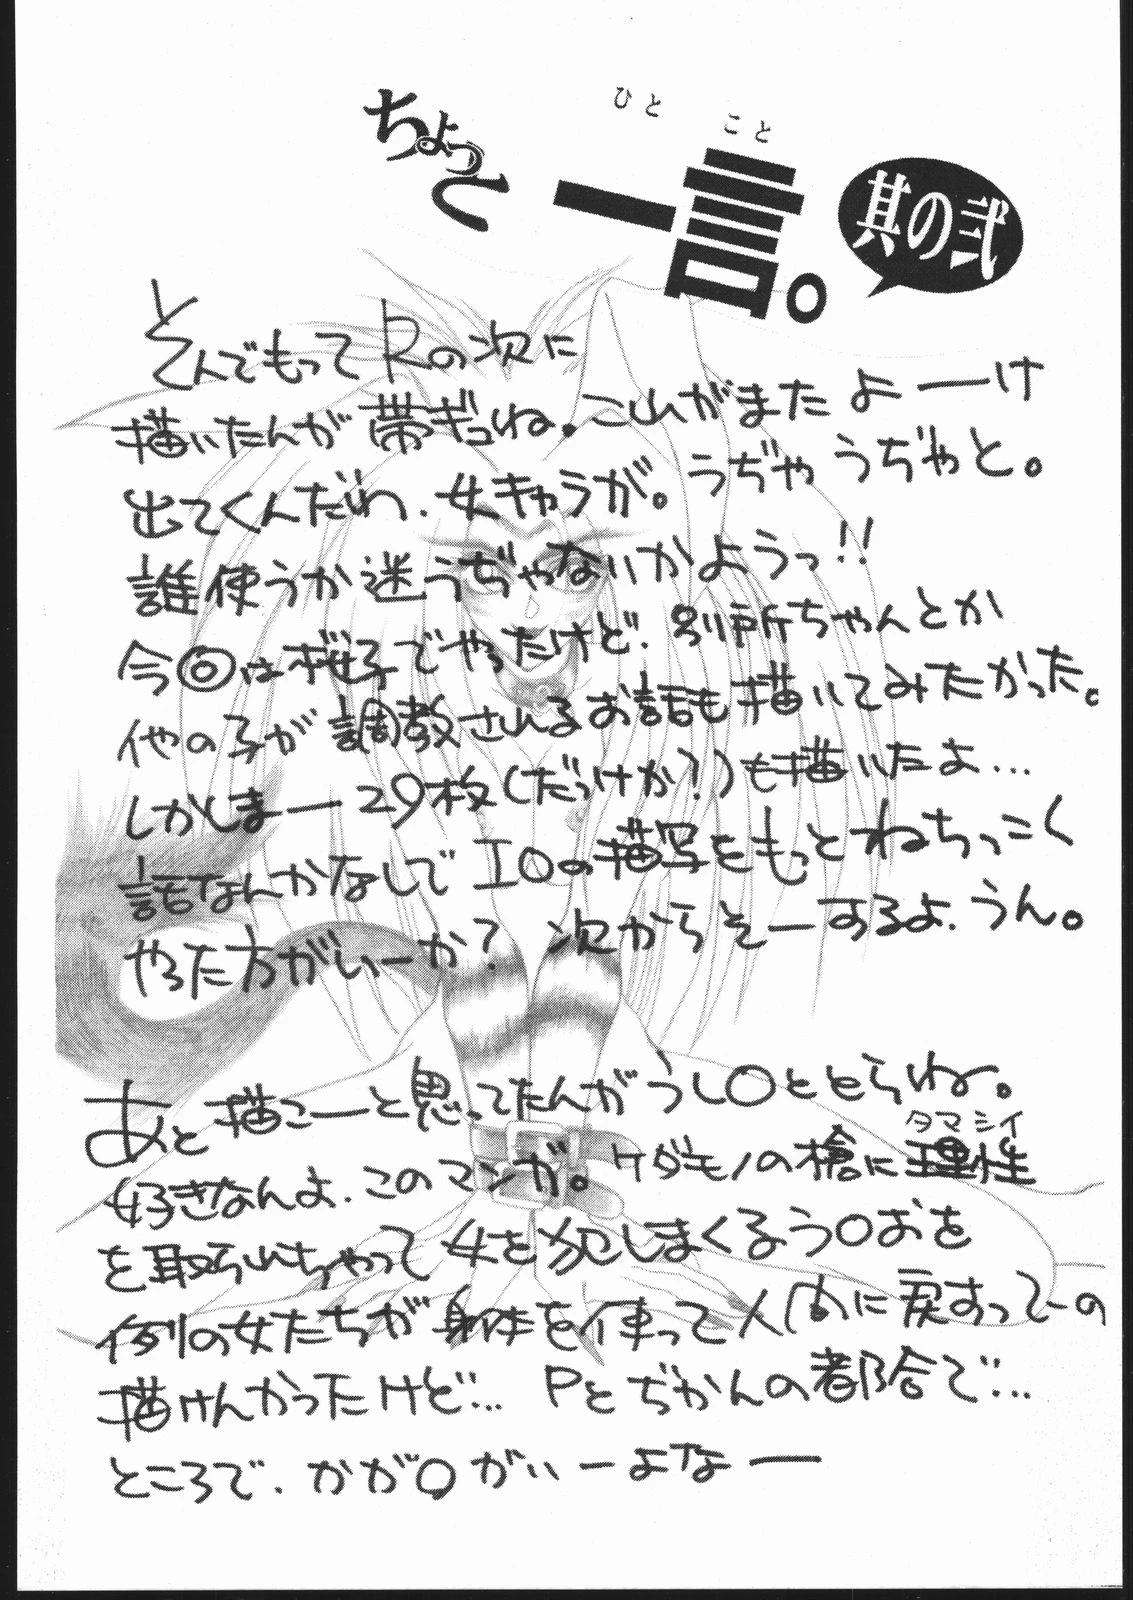 ちょっと一言。
ひとこと
其の弐
そんでもってRの次に
描いたんが帯ギュね。こいがまたよーーけ
出てくんだわ、女キャラが。うぢゃうぢゃと。
誰使うか迷うぢゃないかようっ!!
今◎は桜子でやったけど、別所ちゃんとか
他の子が調教されるお話も描いてみたかった。
しかしまー29枚(だっけか?)も描いたよ…
話なんかなしでIOの描写をもっとねちっこく
やった方がいーか?次からそーするよ、うん。
あと描こーと思ってたんがうし〇ととらね。
好きなんよ、このマンガ。ケダモノの槍に理性
タマシイ
を取られちゃって女を犯しまくるう〇おを
例の女たちが身体を使って人間に戻すってーの
描けんかったけど… Pとぢかんの都合で…
ところで、かが〇がいーよなー